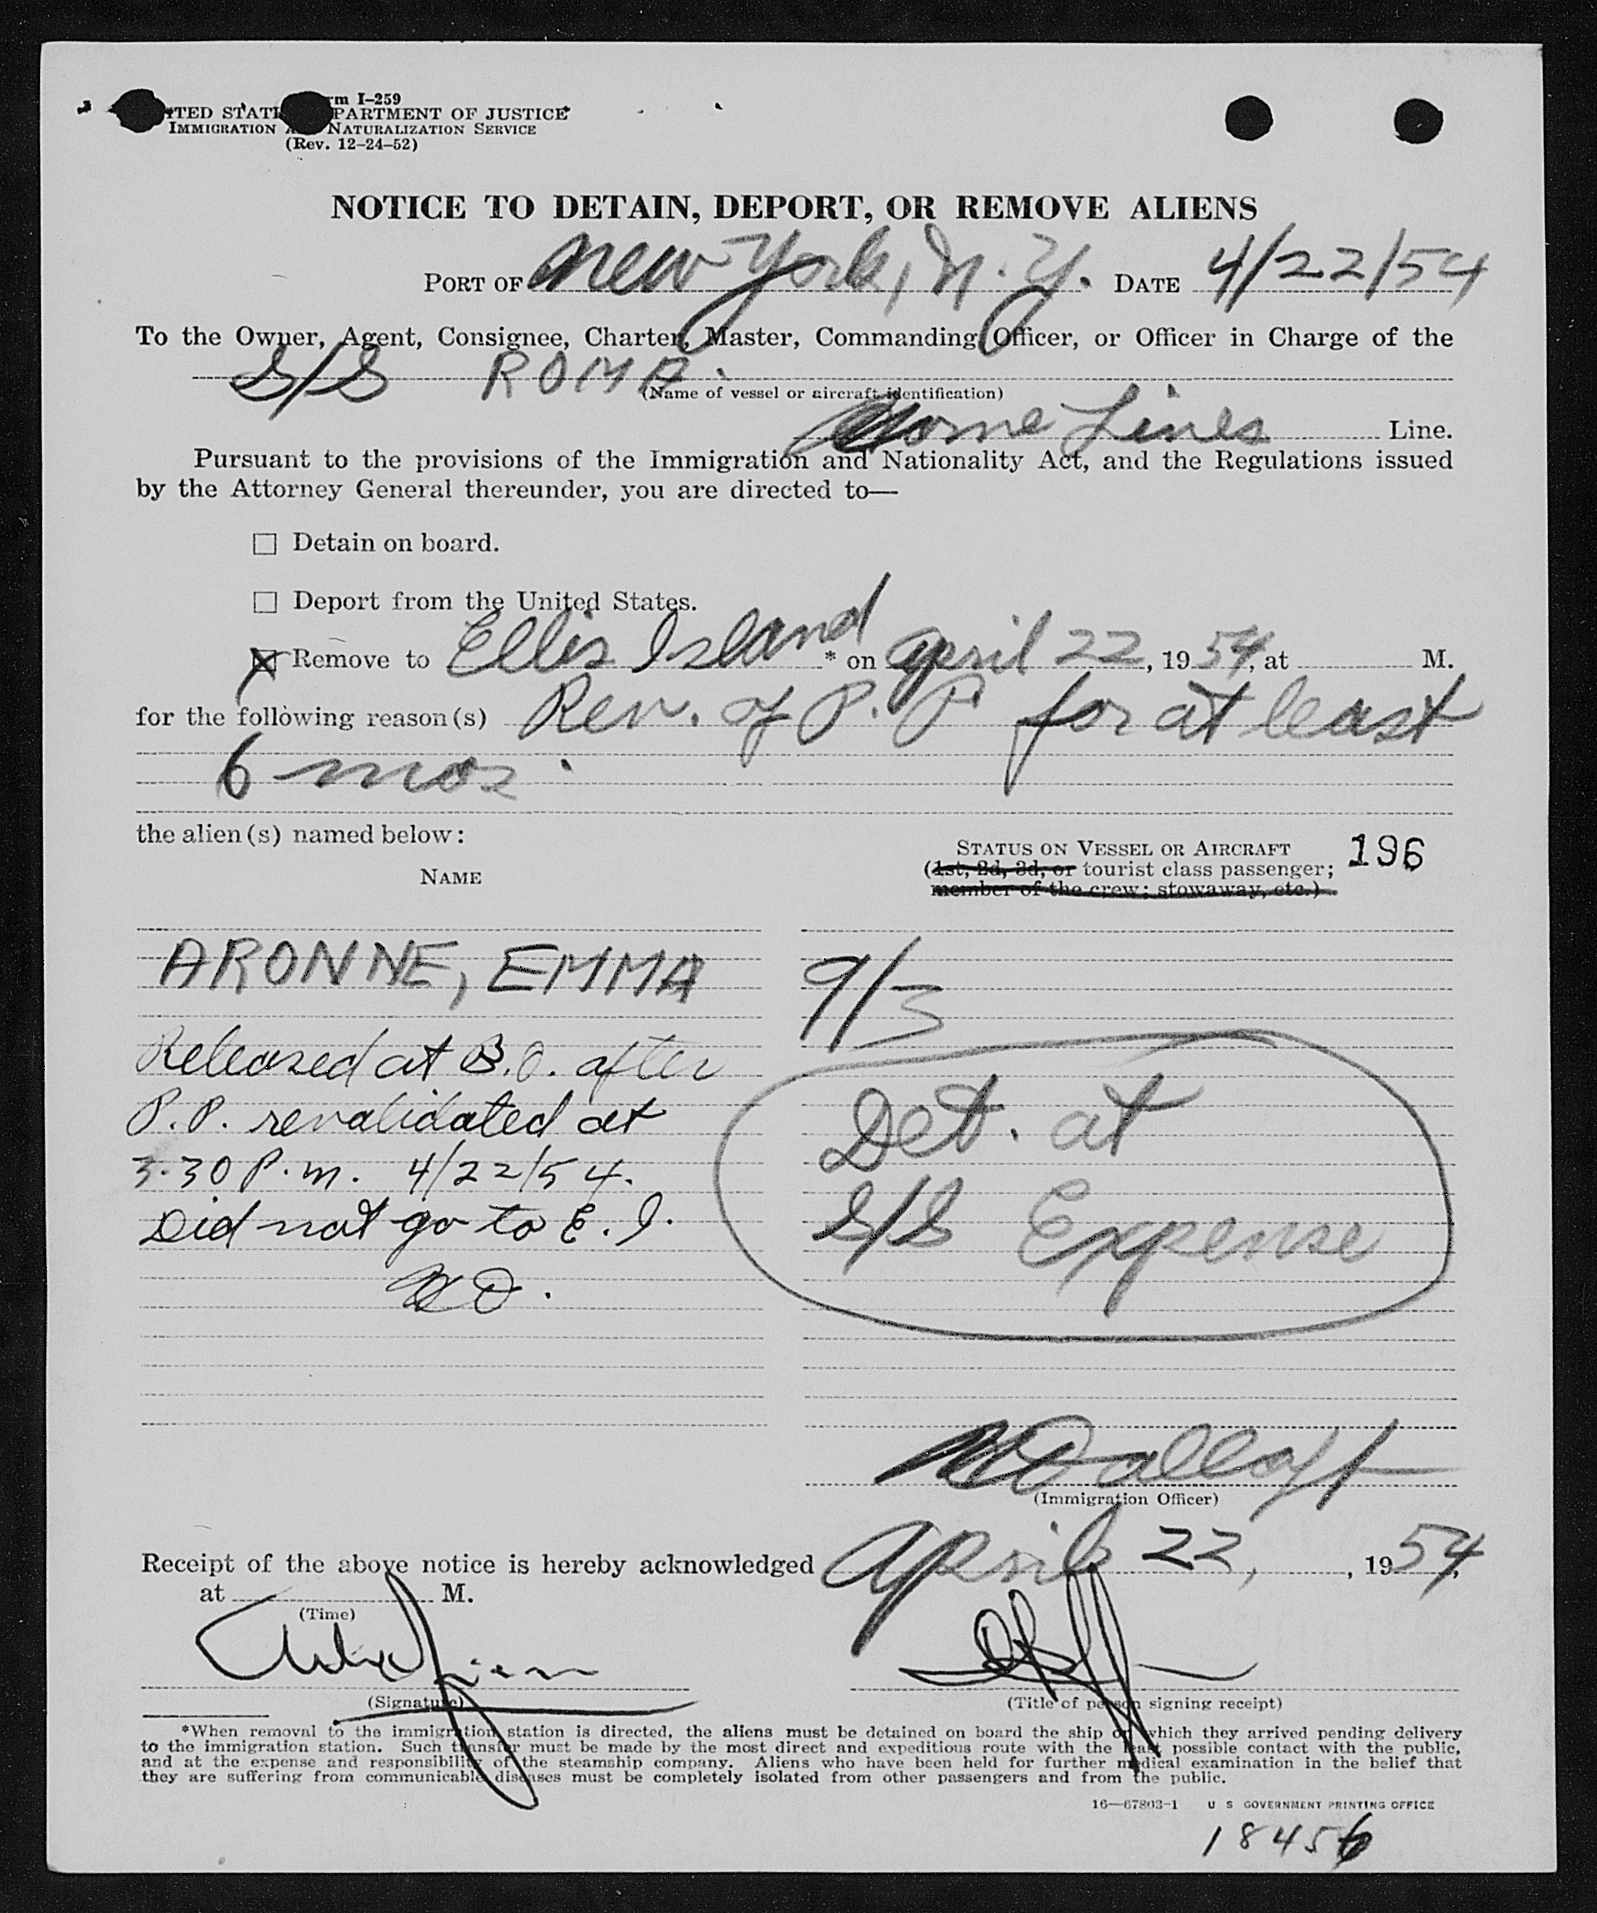 m I-259
TED STAT PARTMENT OF JUSTICE
IMMIGRATION NATURALIZATION SERVICE
(Rev. 12-24-52)
NOTICE TO DETAIN, DEPORT, OR REMOVE ALIENS
PORT OF New York, N.Y. DATE 4/22/54
To the Owner, Agent, Consignee, Charter, Master, Commanding Officer, or Officer in Charge of the
S/S ROMA.
(Name of vessel or aircraft identification)
Home Lines Line.
Pursuant to the provisions of the Immigration and Nationality Act, and the Regulations issued
by the Attorney General thereunder, you are directed to—
☐ Detain on board.
☐ Deport from the United States.
☒ Remove to Ellis Island * on April 22, 1954, at M.
for the following reason(s) Rev. of P.P. for at least
6 mos.
the alien(s) named below:
NAME
STATUS ON VESSEL OR AIRCRAFT 196
(1st, 2d, 3d, or tourist class passenger;
member of the crew; stowaway, etc.)
ARONNE, EMMA 9/3
Released at B.O. after
P.P. revalidated at
3.30 P.m. 4/22/54.
Did not go to E.I.
Det. at
S/S Expense
(Immigration Officer)
Receipt of the above notice is hereby acknowledged April 22, , 1954,
at M.
(Time)
(Signature)
(Title of person signing receipt)
*When removal to the immigration station is directed, the aliens must be detained on board the ship on which they arrived pending delivery
to the immigration station. Such transfer must be made by the most direct and expeditious route with the least possible contact with the public,
and at the expense and responsibility of the steamship company. Aliens who have been held for further medical examination in the belief that
they are suffering from communicable diseases must be completely isolated from other passengers and from the public.
16—67803-1 U S GOVERNMENT PRINTING OFFICE
18456